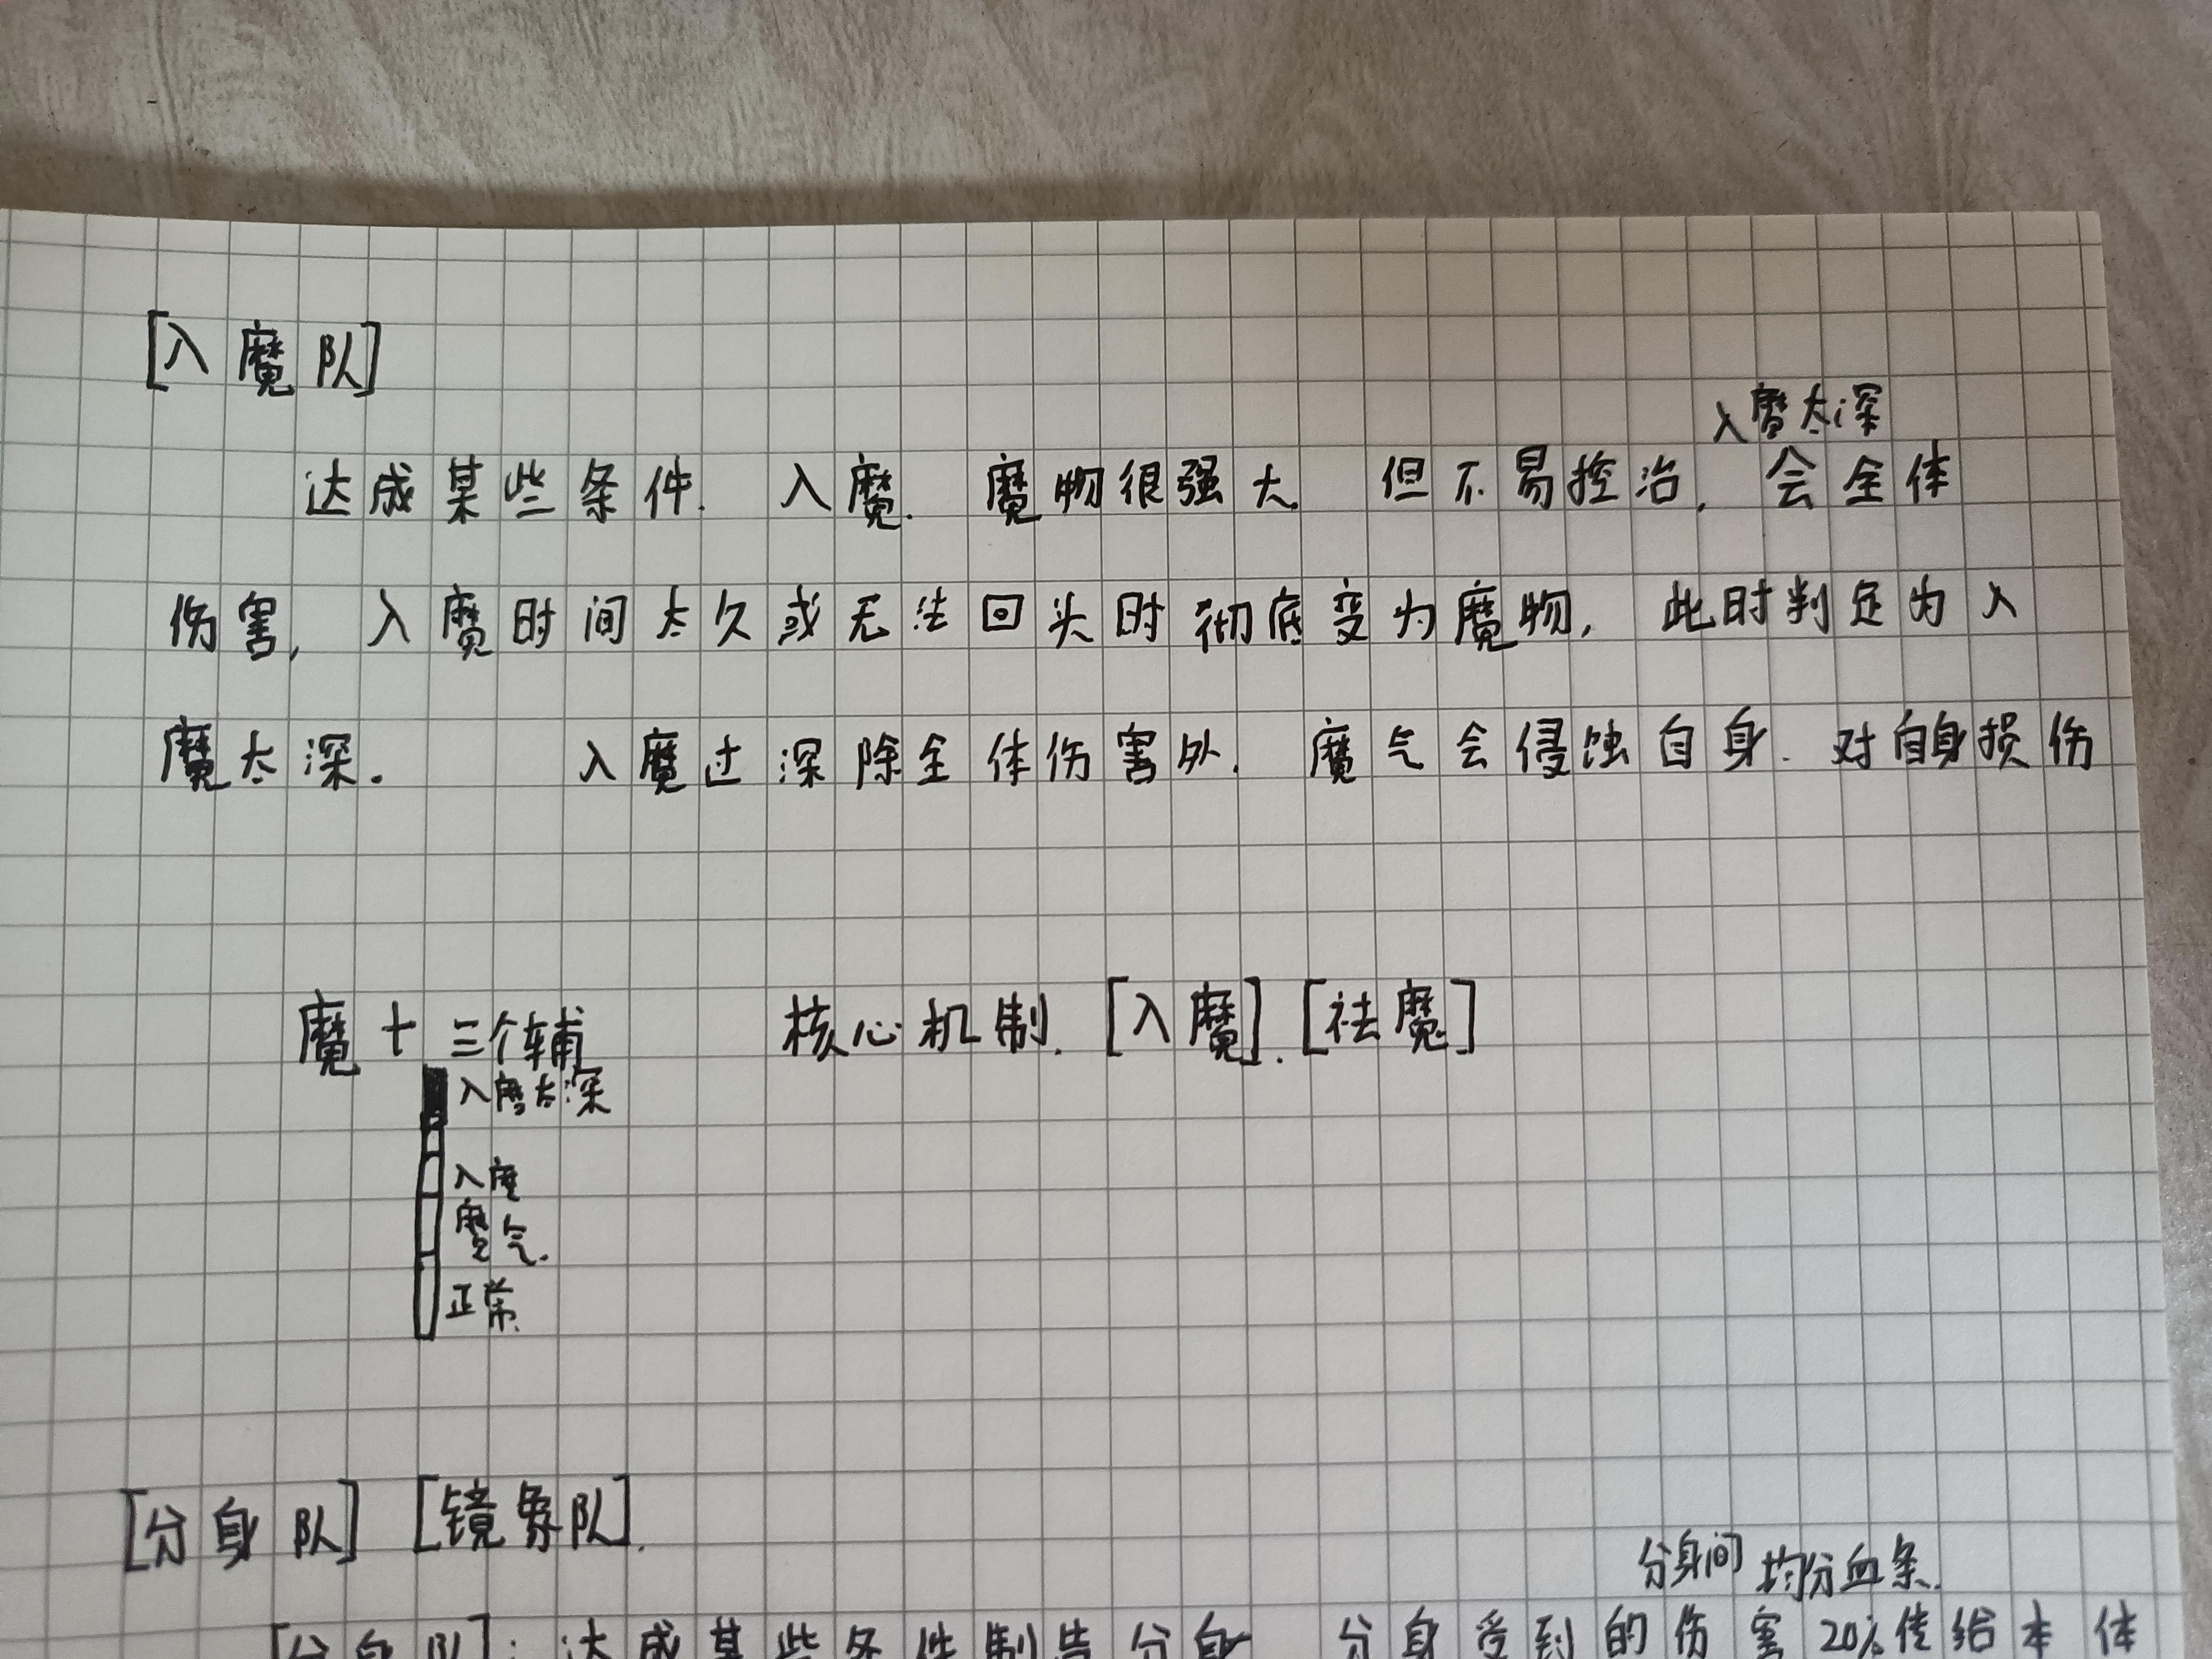 [入魔队]
入魔太深
达成某些条件. 入魔. 魔物很强大. 但不易控治, 会全体
伤害, 入魔时间太久或无法回头时彻底变为魔物, 此时判定为入
魔太深. 入魔过深除全体伤害外. 魔气会侵蚀自身. 对自身损伤
魔+三个辅 核心机制. [入魔]. [祛魔]
入魔太深
入魔
魔气.
正常.
[分身队] [镜象队].
分身间 均分血条.
[分身队]: 达成某些条件制造分身 分身受到的伤害20%传给本体